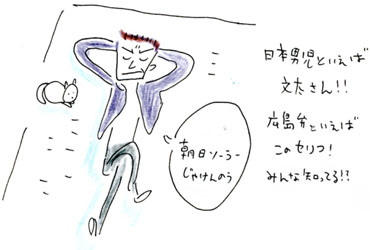 日本男児といえば
文太さん!!
広島弁といえば
このセリフ!
みんな知ってる!?
朝日ソーラー
じゃけんのう